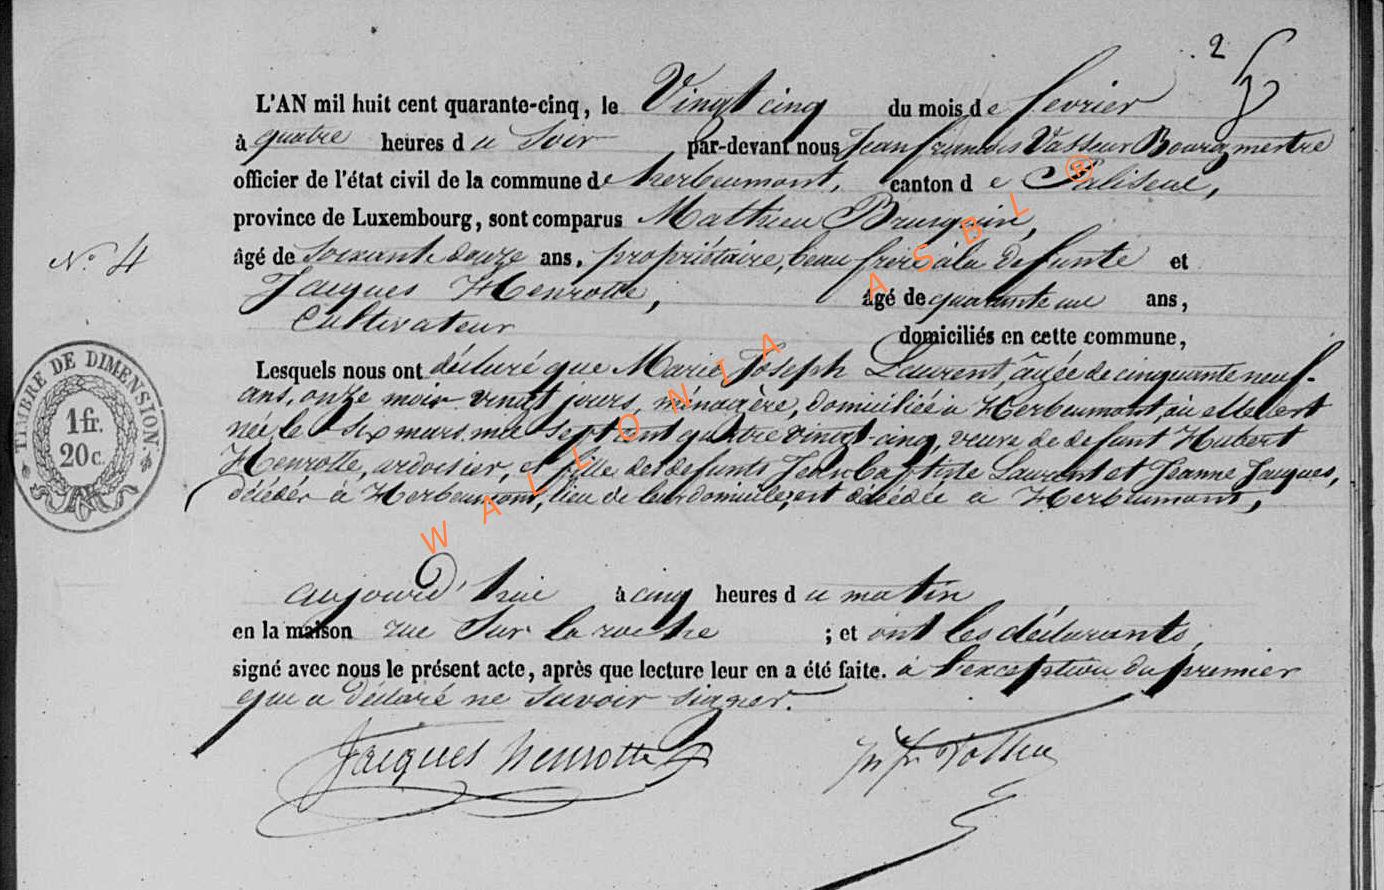 . 2
L'AN mil huit cent quarante-cinq, le Vingt cinq du mois de fevrier
à quatre heures du Soir par-devant nous Jean françois Vasseur Bourgmestre
officier de l'état civil de la commune de herbeumont, canton de Paliseul,
province de Luxembourg, sont comparus Mathieu
âgé de soixante douze ans, propriétaire, beau frère à la défunte et
N.° 4
Jacques Henrotte, âgé de quarante un ans,
Cultivateur
domiciliés en cette commune,
Lesquels nous ont déclaré que Marie Joseph Laurent, âgée de cinquante neuf
ans, onze mois vingt jours, ménagère, domiciliée à Herbeumont, où elle est
née le six mars mil sept cent quatre vingt-cinq, veuve de defunt Hubert
Henrotte, ardoisier, et fille des defunts Jean baptiste Laurent et Jeanne Jacques,
décédés à Herbeumont, lieu de leur domicile, est décédée à Herbeumont,
TIMBRE DE DIMENSION.
1 fr.
20 c.
aujourd'hui à cinq heures du matin
en la maison rue Sur la roche ; et ont les déclarants,
signé avec nous le présent acte, après que lecture leur en a été faite. à l'exception du premier
que a déclaré ne savoir signer.
Jacques henrotte
Jn fr Vasseur
WALLONIA ASBL ®